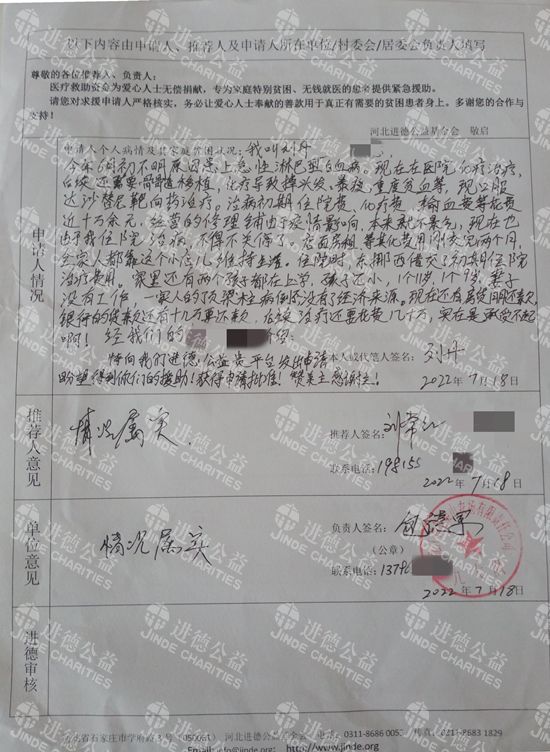 以下内容由申请人、推荐人及申请人所在单位/村委会/居委会负责人填写
尊敬的各位推荐人、负责人:
医疗救助资金为爱心人士无偿捐献，专为家庭特别贫困、无钱就医的患者提供紧急援助。
请您对求援申请人严格核实，务必让爱心人士奉献的善款用于真正有需要的贫困患者身上。多谢您的合作与
支持!
河北进德公益基金会 敬启
申请人情况
申请人个人病情及其家庭贫困状况: 我叫刘丹
今年6月初不明原因患上急性淋巴型白血病。现在在医院化疗治疗，
后续还需要骨髓移植，化疗导致掉头发、暴瘦、重度贫血等，现口服
达沙替尼靶向药治疗。治病初期住院费、化疗费、输血费等花费
近十万余元，经营的修理铺由于疫情影响，本来就不景气，现在也
由于我住院治病，不得不关停了。店面房租等其他费用刚交完两个月，
全家人都靠这个小店儿维持生活。住院时东挪西借交了初期住院
治疗费用。家里还有两个孩子都在上学，孩子还小，1个11岁，1个9岁，妻子
没有工作，一家人的顶梁柱病倒后没有了经济来源。现在还有房贷月月还款，
银行的贷款还有十几万要还款，后续治疗还要花费几十万，实在是承受不起
啊! 经我们的
特向我们进德公益贵平台发出申请
盼望得到你们的援助!获得申请批准!赞美主感谢主!
本人或代笔人签名: 刘丹
2022年7月18日
推荐人意见
情况属实.
推荐人签名: 刘常江
联系电话: 198155
2022年7月18日
单位意见
情况属实
负责人签名:
(公章)
联系电话: 1378
2022年7月18日
进德审核
河北省石家庄市学府路3号(050061) 河北进德公益基金会 电话: 0311-8686 0055 传真: 0311-8683 1829
Email: info@jinde.org; http://www.jinde.org
进德公益
JINDE CHARITIES